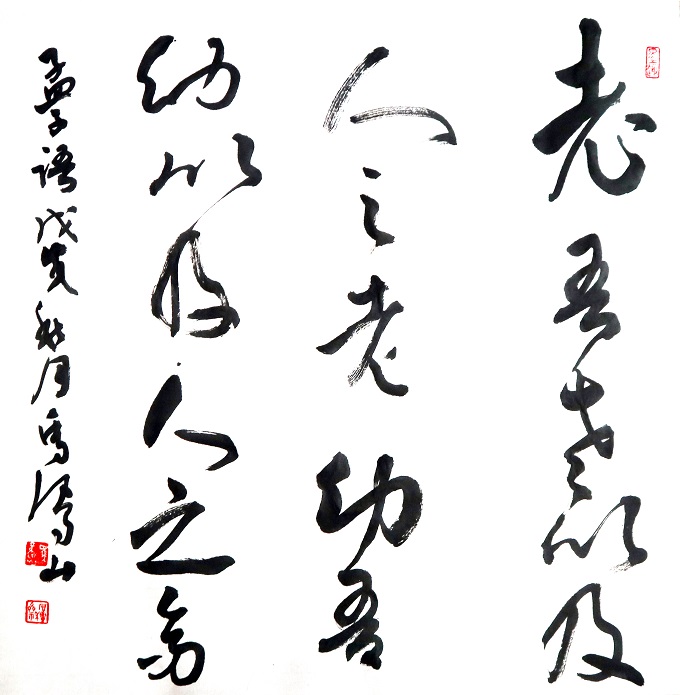 老吾老以及
人之老幼吾
幼以及人之幼
孟子語戊戌秋月